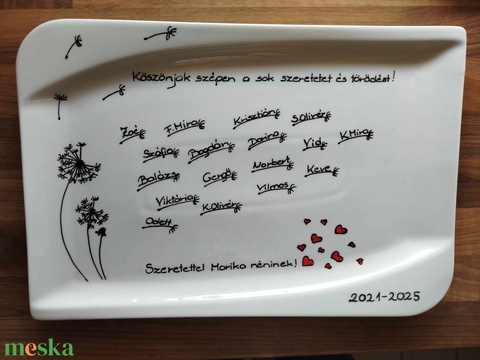 Köszönjük szépen a sok szeretetet és törődést!
Zoé F.Mira Krisztián S.Olivér
Szófia Bogdán Dorina Vid K.Mira
Balázs Gergő Norbert Keve
Viktória K.Olivér Vilmos
Odett
Szeretettel Marika néninek!
2021-2025
meska